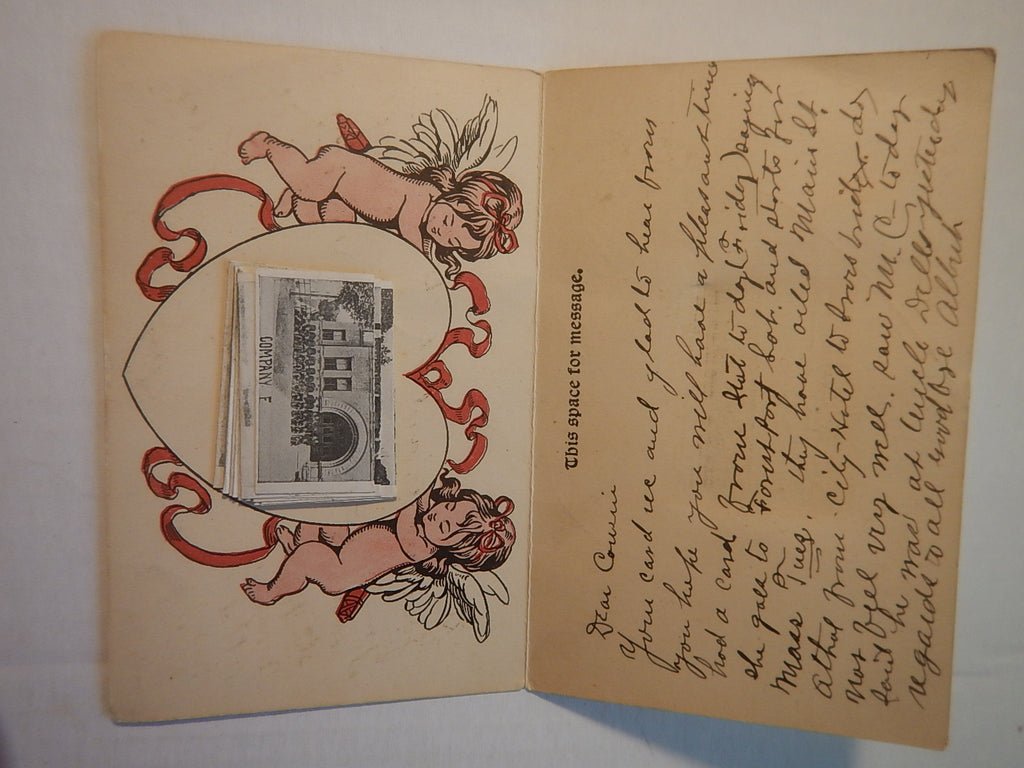 COMPANY F
This space for message.
Dear Cousin
Your card rec and glad to hear from
you hope you will have a pleasant time
had a card from Hat to day (Friday) saying
she gole to Forestport Sat. and starts for
Mass Tues. they have oiled Main St
athol from city Hotel to horsbridge dos
not feel very well. saw Mr. C to day
said he was at Uncle Dells yesterday
regards to all Albert